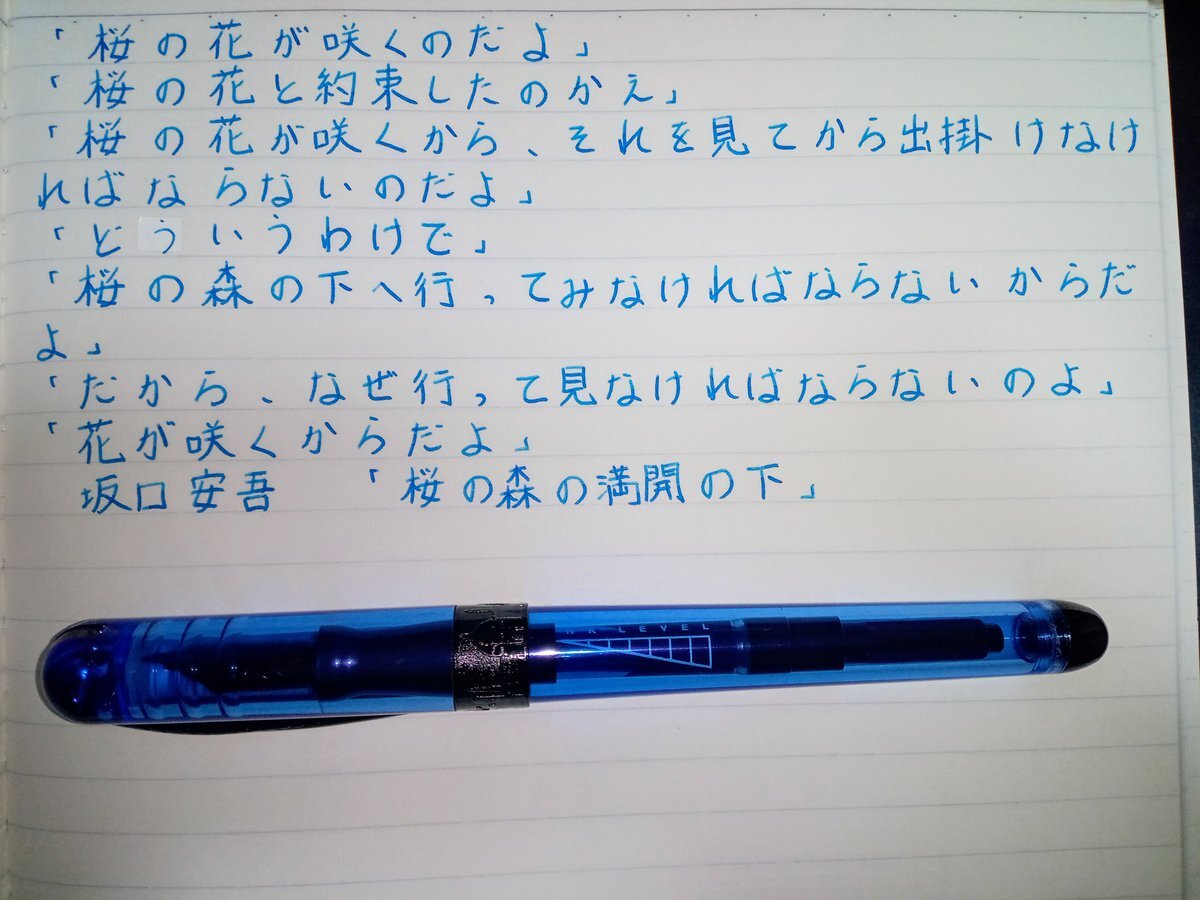 「桜の花が咲くのだよ」
「桜の花と約束したのかえ」
「桜の花が咲くから、それを見てから出掛けなけ
ればならないのだよ」
「どういうわけで」
「桜の森の下へ行ってみなければならないからだ
よ」
「だから、なぜ行って見なければならないのよ」
「花が咲くからだよ」
坂口安吾 「桜の森の満開の下」
NK LEVEL